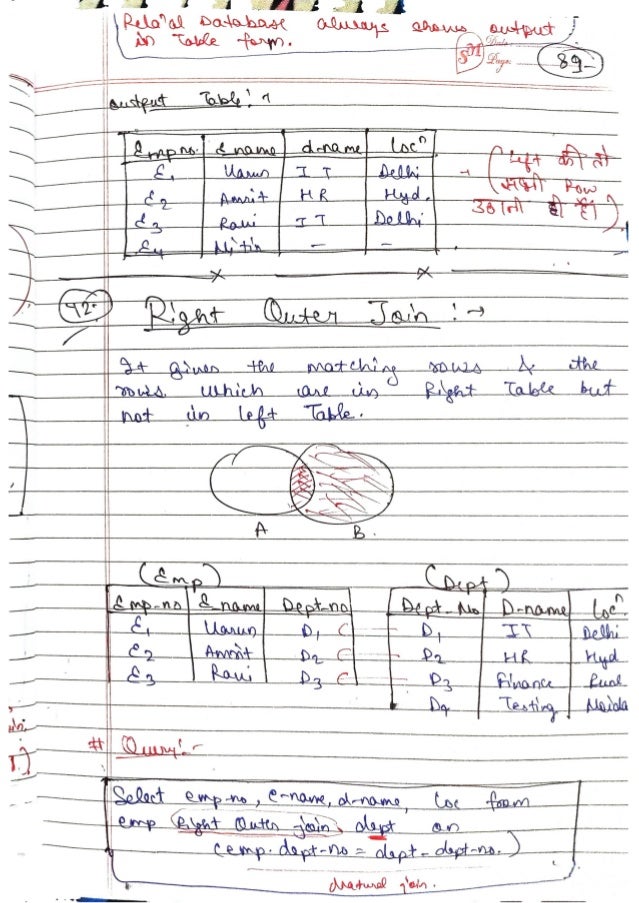 Rela'al Database always shows output
in Table form.
SM Date
Page:
89
output Table:
Emp no. Ename d-name Locn
E1 Varun IT Delhi
E2 Amrit HR Hyd.
E3 Ravi IT Delhi
E4 Nitin - -
(Left की तो
सभी Row
उठानी ही है।)
92.
Right Outer Join :→
It gives the matching rows & the
rows which are in Right Table but
not in left Table.
A B.
(Emp) (Dept)
Emp-no Ename Dept-no
E1 Varun D1
E2 Amrit D2
E3 Ravi D3
Dept-No D-name Locn
D1 IT Delhi
D2 HR Hyd
D3 Finance Pune
D4 Testing Noida
# Query:-
Select emp-no, e-name, d-name, loc from
emp Right Outer join dept on
(emp.dept-no = dept-dept-no.)
Natural join.